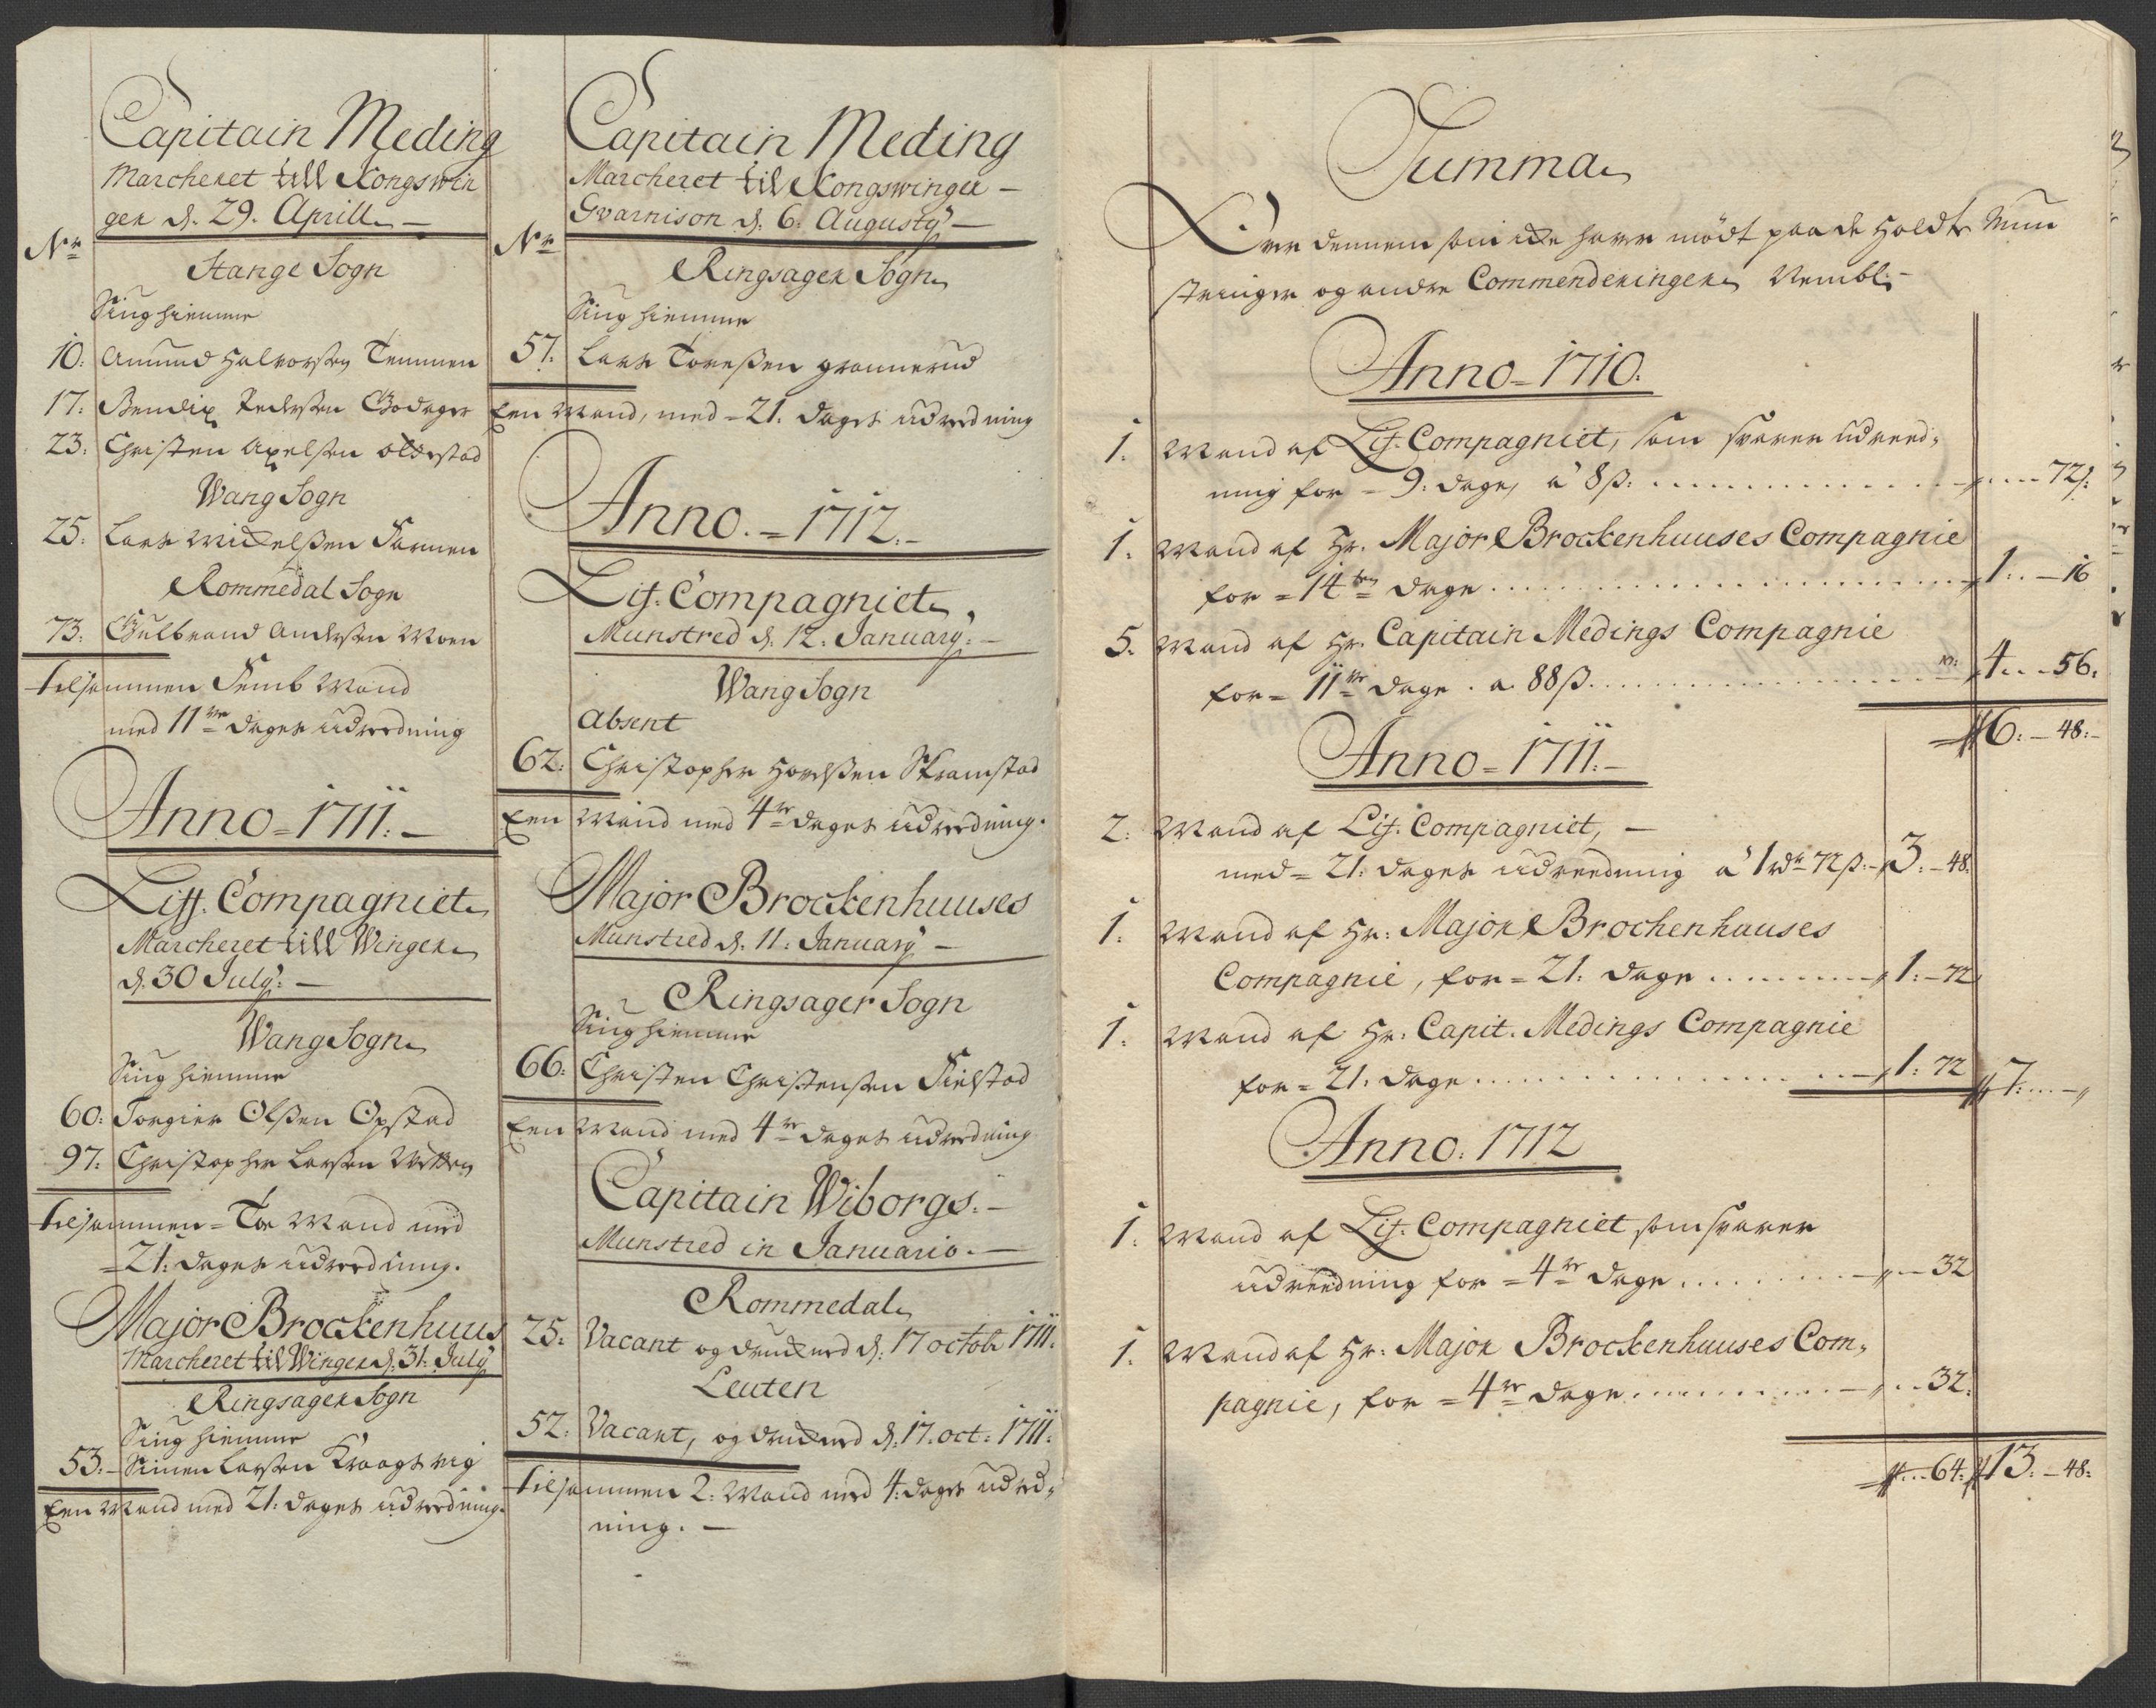 Capitain Meding
Marcheret till Kongswin
ger d. 29. Aprill
Nr
Stange Sogn
Siug hiemme
10: Amund Halvorsen Temmen
17: Bendix Pedersen Godager
23: Christen Axelsen Oldstad
Wang Sogn
25: Lars Mickelsen Farmen
Rommedal Sogn
73: Gulbrand Andersen Moen
tilsammen Femb Mand
med 11ve dages udreedning
Anno = 1711. —
Liff. Compagniet
Marcheret till Winger
d. 30 July: —
Wang Sogn
Siug hiemme
60: Torgier Olsen Opstad
97: Christopher Larsen
tilsammen = Toe Mand med
= 21: dages udreedning.
Major Brockenhuus
Marcheret til Winger d. 31: July
Ringsager Sogn
Siug hiemme
53. – Simen Larsen Kraagsvig
Een Mand med 21: dages udreedning.
Capitain Meding
Marcheret til Kongswinger —
Gvarnison d. 6. Augusty —
Nr
Ringsager Sogn
Siug hiemme
57. Lars Toresen grannerud
Een Mand, med – 21. dages udreedning
Anno. = 1712. –
Lif. Compagniet.
Munstred d. 12. January: —
Wang Sogn
Absent
62: Christopher Hovelsen Skramstad
Een Mand med 4re dages udreedning.
Major Brockenhuuses
Munstred d. 11: January —
Ringsager Sogn
Siug hiemme
66: Christen Christensen Fielstad
Een Mand med 4re dages udreedning
Capitain Wiborgs. —
Munstred in Januario. —
Rommedal
25: Vacant og druckned d. 17 octobr 1711.
Leuten
52: Vacant, og druckned d. 17. oct: 1711.
tilsammen 2: Mand med 4: dages udred,
ning. —
Summa
Over dennem som icke haver mødt paa de holdte Mun
stringer og andre Commenderinger Nembl: –
Anno = 1710.
1. Mand af Lif. Compagniet, som svarer udreed,
ning for – 9: dage, a 8ß: ........ 72ß:
1. Mand af Hr. Major Brockenhuuses Compagnie
for = 14ten dage ........ 1: – 16
5. Mand af Hr. Capitain Medings Compagnie
for = 11ve dage . a. 88ß ........ 4. – 56:
6: – 48: –
Anno = 1711. –
2: Mand af Lif. Compagniet, —
med = 21: dages udreedning a 1 rdr 72ß: – 3: – 48:
1. Mand af Hr: Major Brochenhuuses
Compagnie, for = 21: dage ........ 1: – 72
1. Mand af Hr: Capit. Medings Compagnie
for = 21: dage ........ 1: 72
7: ....
Anno. 1712
1. Mand af Lif. Compagniet som svarer
udreedning for = 4re dage ........ 32
1. Mand af Hr: Major Brockenhuuses Com,
pagnie, for = 4re dage ........ 32:
64: 13: – 48: